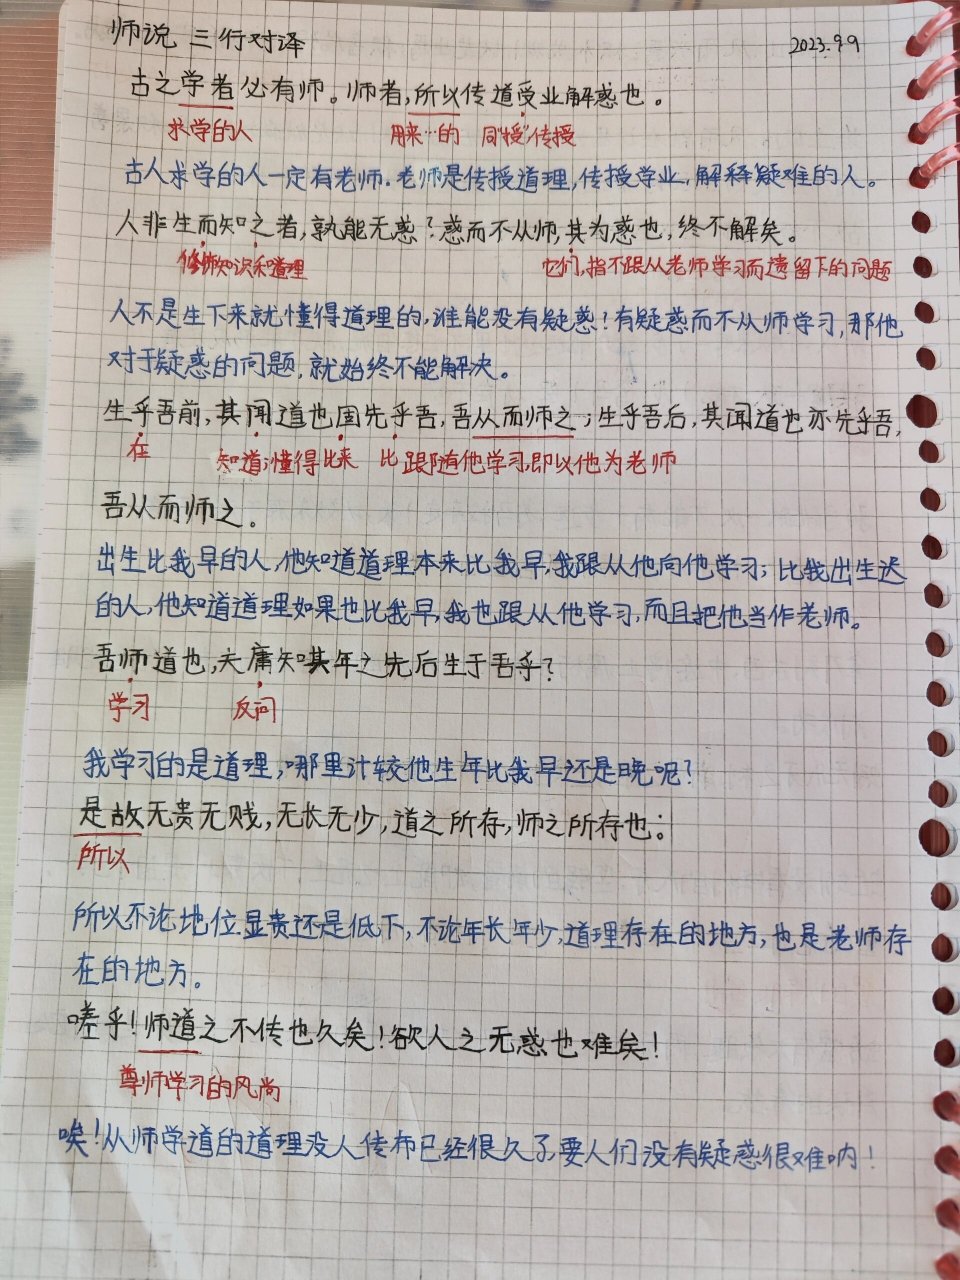 师说 三行对译 2023.9.9
古之学者必有师。师者,所以传道受业解惑也。
求学的人 用来…的 同“授”,传授
古人求学的人一定有老师.老师是传授道理,传授学业,解释疑难的人。
人非生而知之者,孰能无惑?惑而不从师,其为惑也,终不解矣。
知识和道理 它们,指不跟从老师学习而遗留下的问题
人不是生下来就懂得道理的,谁能没有疑惑!有疑惑而不从师学习,那他
对于疑惑的问题,就始终不能解决。
生乎吾前,其闻道也固先乎吾,吾从而师之;生乎吾后,其闻道也亦先乎吾,
在 知道;懂得 比来 比 跟随他学习,即以他为老师
吾从而师之。
出生比我早的人,他知道道理本来比我早,我跟从他向他学习;比我出生迟
的人,他知道道理如果也比我早,我也跟从他学习,而且把他当作老师。
吾师道也,夫庸知其年之先后生于吾乎?
学习 反问
我学习的是道理,哪里计较他生年比我早还是晚呢?
是故无贵无贱,无长无少,道之所存,师之所存也:
所以
所以不论地位显贵还是低下,不论年长年少,道理存在的地方,也是老师存
在的地方。
嗟乎!师道之不传也久矣!欲人之无惑也难矣!
尊师学习的风尚
唉!从师学道的道理没人传布已经很久了,要人们没有疑惑很难呐!